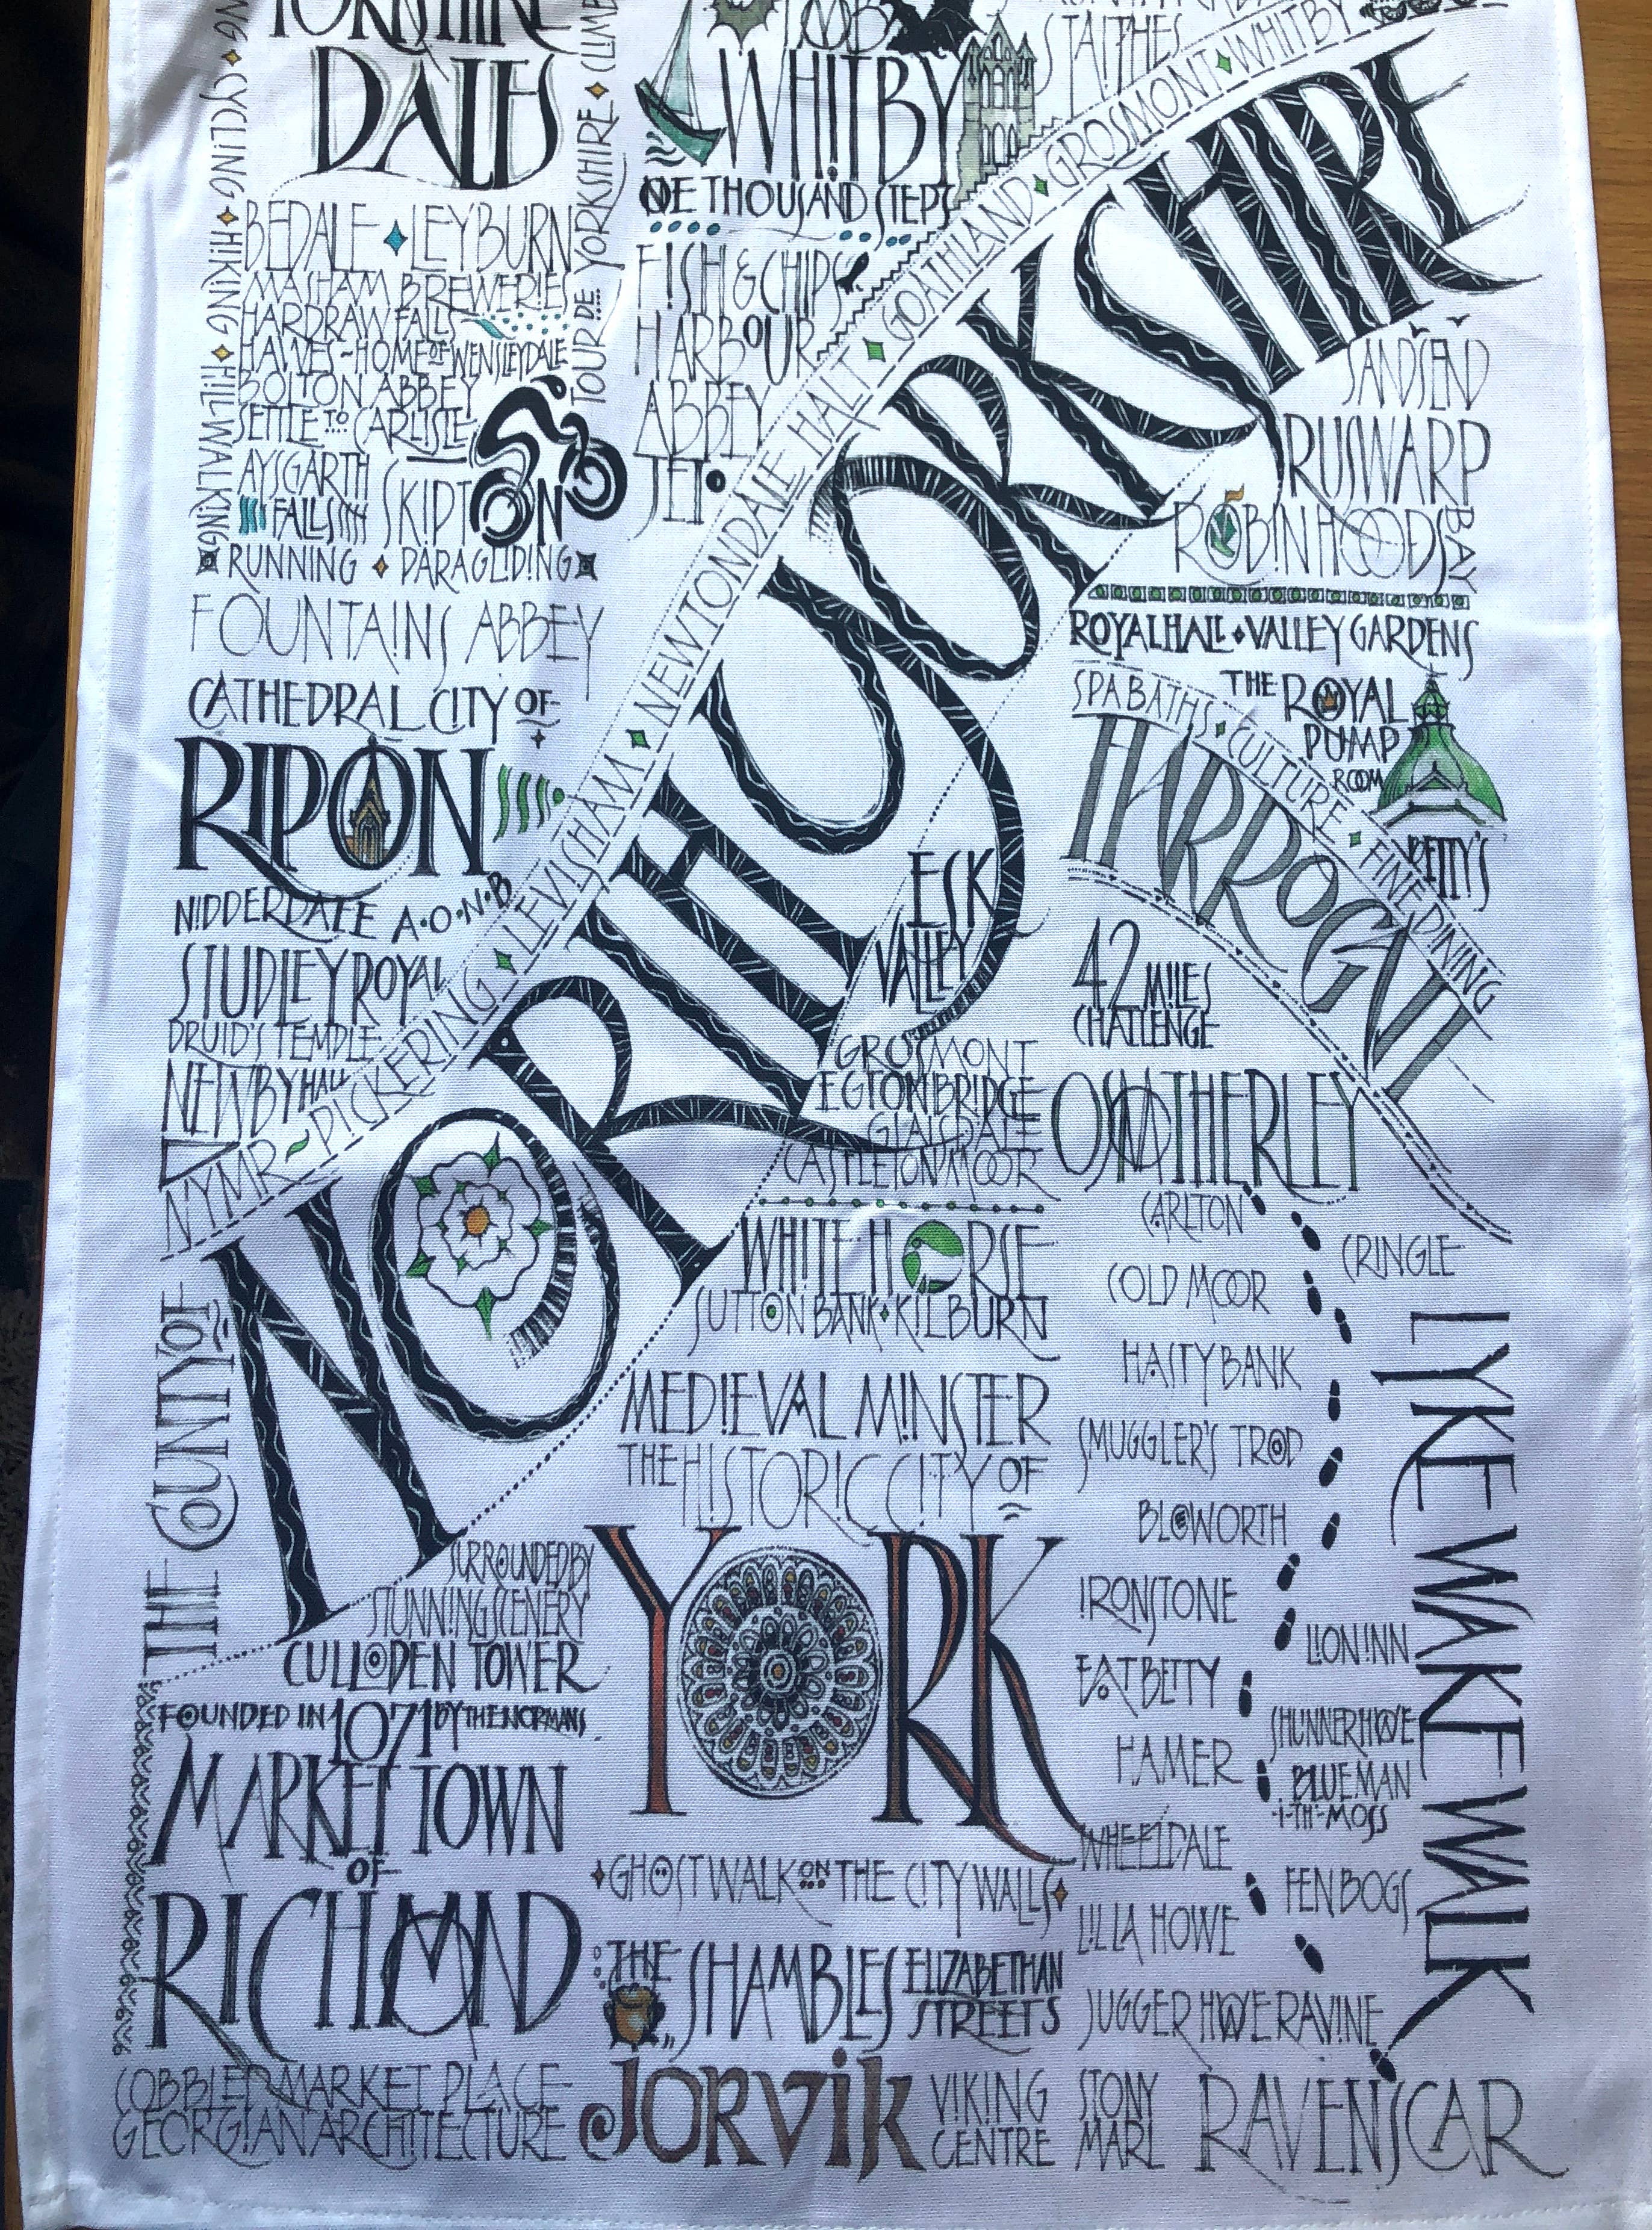 YORKSHIRE
DALES
CYCLING ♦ HIKING ♦ HILLWALKING
TOUR DE YORKSHIRE ♦
BEDALE ♦ LEYBURN
MASHAM BREWERIES
HARDRAW FALLS
HAWES ~ HOME OF WENSLEYDALE
BOLTON ABBEY
SETTLE TO CARLISLE
AYSGARTH
FALLS
SKIPTON
RUNNING ♦ PARAGLIDING
FOUNTAINS ABBEY
CATHEDRAL CITY OF
RIPON
NIDDERDALE A·O·N·B
STUDLEY ROYAL
DRUID'S TEMPLE
NEWBY HALL
WHITBY
ONE THOUSAND STEPS
FISH & CHIPS
HARBOUR
ABBEY
JET
STAITHES
NYMR ~ PICKERING ♦ LEVISHAM ♦ NEWTONDALE HALT ♦ GOATHLAND ♦ GROSMONT ♦ WHITBY
THE COUNTY OF
NORTH YORKSHIRE
SANDSEND
RUSWARP
ROBIN HOODS BAY
ROYAL HALL ♦ VALLEY GARDENS
THE ROYAL
PUMP
ROOM
SPA BATHS ♦ CULTURE ♦ FINE DINING
BETTY'S
HARROGATE
ESK
VALLEY
GROSMONT
EGTON BRIDGE
GLAISDALE
CASTLETON MOOR
WHITE HORSE
SUTTON BANK ♦ KILBURN
MEDIEVAL MINSTER
THE HISTORIC CITY OF
YORK
♦ GHOST WALK ON THE CITY WALLS ♦
THE SHAMBLES
ELIZABETHAN
STREETS
JORVIK
VIKING
CENTRE
SURROUNDED BY
STUNNING SCENERY
CULLODEN TOWER
FOUNDED IN 1071 BY THE NORMANS
MARKET TOWN
OF
RICHMOND
COBBLED MARKET PLACE-
GEORGIAN ARCHITECTURE
42 MILES
CHALLENGE
OSMOTHERLEY
CARLTON
CRINGLE
COLD MOOR
HASTY BANK
SMUGGLER'S TROD
BLOWORTH
IRONSTONE
LION INN
FAT BETTY
SHUNNER HOWE
HAMER
BLUE MAN
-I-TH'-MOSS
WHEELDALE
FEN BOGS
LILLA HOWE
JUGGER HOWE RAVINE
STONY
MARL
RAVENSCAR
LYKE WAKE WALK